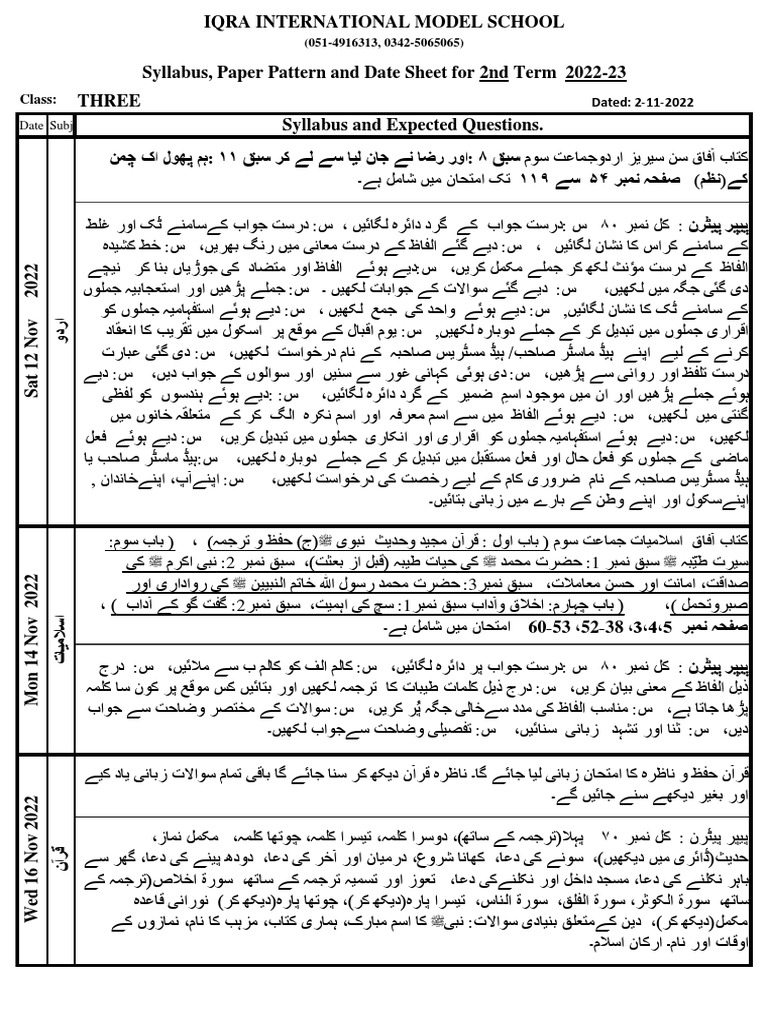 IQRA INTERNATIONAL MODEL SCHOOL
(051-4916313, 0342-5065065)
Syllabus, Paper Pattern and Date Sheet for 2nd Term 2022-23
Class: THREE Dated: 2-11-2022
Date Subj Syllabus and Expected Questions.
Sat 12 Nov 2022
اردو
کتاب آفاق سن سیریز اردوجماعت سوم سبق ۸ :اور رضا نے جان لیا سے لے کر سبق ۱۱ :ہم پھول اک چمن
کے(نظم) صفحہ نمبر ۵۴ سے ۱۱۹ تک امتحان میں شامل ہے۔
پیپر پیٹرن : کل نمبر ۸۰ س :درست جواب کے گرد دائرہ لگائیں ، س: درست جواب کےسامنے ٹک اور غلط
کے سامنے کراس کا نشان لگائیں ، س: دیے گئے الفاظ کے درست معانی میں رنگ بھریں، س: خط کشیدہ
الفاظ کے درست مؤنث لکھ کر جملے مکمل کریں، س:دیے ہوئے الفاظ اور متضاد کی جوڑیاں بنا کر نیچے
دی گئی جگہ میں لکھیں، س: دیے گئے سوالات کے جوابات لکھیں ۔ س: جملے پڑھیں اور استعجابیہ جملوں
کے سامنے ٹک کا نشان لگائیں, س: دیے ہوئے واحد کی جمع لکھیں ، س: دیے ہوئے استفہامیہ جملوں کو
اقراری جملوں میں تبدیل کر کے جملے دوبارہ لکھیں, س: یوم اقبال کے موقع پر اسکول میں تقریب کا انعقاد
کرنے کے لیے اپنے ہیڈ ماسٹر صاحب/ ہیڈ مسٹریس صاحبہ کے نام درخواست لکھیں، س: دی گئی عبارت
درست تلفظ اور روانی سے پڑھیں، س: دی ہوئی کہانی غور سے سنیں اور سوالوں کے جواب دیں، س: دیے
ہوئے جملے پڑھیں اور ان میں موجود اسم ضمیر کے گرد دائرہ لگائیں، س: :دیے ہوئے ہندسوں کو لفظی
گنتی میں لکھیں، س: دیے ہوئے الفاظ میں سے اسم معرفہ اور اسم نکرہ الگ کر کے متعلقہ خانوں میں
لکھیں، س: دیے ہوئے استفہامیہ جملوں کو اقراری اور انکاری جملوں میں تبدیل کریں، س: دیے ہوئے فعل
ماضی کے جملوں کو فعل حال اور فعل مستقبل میں تبدیل کر کے جملے دوبارہ لکھیں، س:ہیڈ ماسٹر صاحب یا
ہیڈ مسٹریس صاحبہ کے نام ضروری کام کے لیے رخصت کی درخواست لکھیں، س: اپنےآپ، اپنےخاندان ,
اپنےسکول اور اپنے وطن کے بارے میں زبانی بتائیں۔
Mon 14 Nov 2022
اسلامیات
کتاب آفاق اسلامیات جماعت سوم ( باب اول : قرآن مجید وحدیث نبوی ﷺ(ج) حفظ و ترجمہ) ، ( باب سوم:
سیرت طیّبہ ﷺ سبق نمبر 1: حضرت محمد ﷺ کی حیات طیبہ (قبل از بعثت)، سبق نمبر 2: نبی اکرم ﷺ کی
صداقت، امانت اور حسن معاملات، سبق نمبر3: حضرت محمد رسول اللہ خاتم النبیین ﷺ کی رواداری اور
صبروتحمل )، ( باب چہارم: اخلاق وآداب سبق نمبر1: سچ کی اہمیت، سبق نمبر2: گفت گو کے آداب ) ،
صفحہ نمبر 3،4،5، 38-52، 53-60 امتحان میں شامل ہے۔
پیپر پیٹرن : کل نمبر ۸۰ س: درست جواب پر دائرہ لگائیں، س: کالم الف کو کالم ب سے ملائیں، س: درج
ذیل الفاظ کے معنی بیان کریں، س: درج ذیل کلمات طیبات کا ترجمہ لکھیں اور بتائیں کس موقع پر کون سا کلمہ
پڑھا جاتا ہے، س: مناسب الفاظ کی مدد سےخالی جگہ پُر کریں، س: سوالات کے مختصر وضاحت سے جواب
دیں، س: ثنا اور تشہد زبانی سنائیں، س: تفصیلی وضاحت سےجواب لکھیں۔
Wed 16 Nov 2022
قرآن
قرآن حفظ و ناظرہ کا امتحان زبانی لیا جائے گا۔ ناظرہ قرآن دیکھ کر سنا جائے گا باقی تمام سوالات زبانی یاد کیے
اور بغیر دیکھے سنے جائیں گے۔
پیپر پیٹرن : کل نمبر ۷۰ پہلا(ترجمہ کے ساتھ)، دوسرا کلمہ، تیسرا کلمہ، چوتھا کلمہ، مکمل نماز،
حدیث(ڈائری میں دیکھیں)، سونے کی دعا، کھانا شروع، درمیان اور آخر کی دعا، دودھ پینے کی دعا، گھر سے
باہر نکلنے کی دعا، مسجد داخل اور نکلنےکی دعا، تعوز اور تسمیہ ترجمہ کے ساتھ، سورۃ اخلاص(ترجمہ کے
ساتھ، سورۃ الکوثر، سورۃ الفلق، سورۃ الناس، تیسرا پارہ(دیکھ کر)، چوتھا پارہ(دیکھ کر) نورانی قاعدہ
مکمل(دیکھ کر)، دین کےمتعلق بنیادی سوالات: نبیﷺ کا اسم مبارک، ہماری کتاب، مزہب کا نام، نمازوں کے
اوقات اور نام۔ ارکان اسلام۔